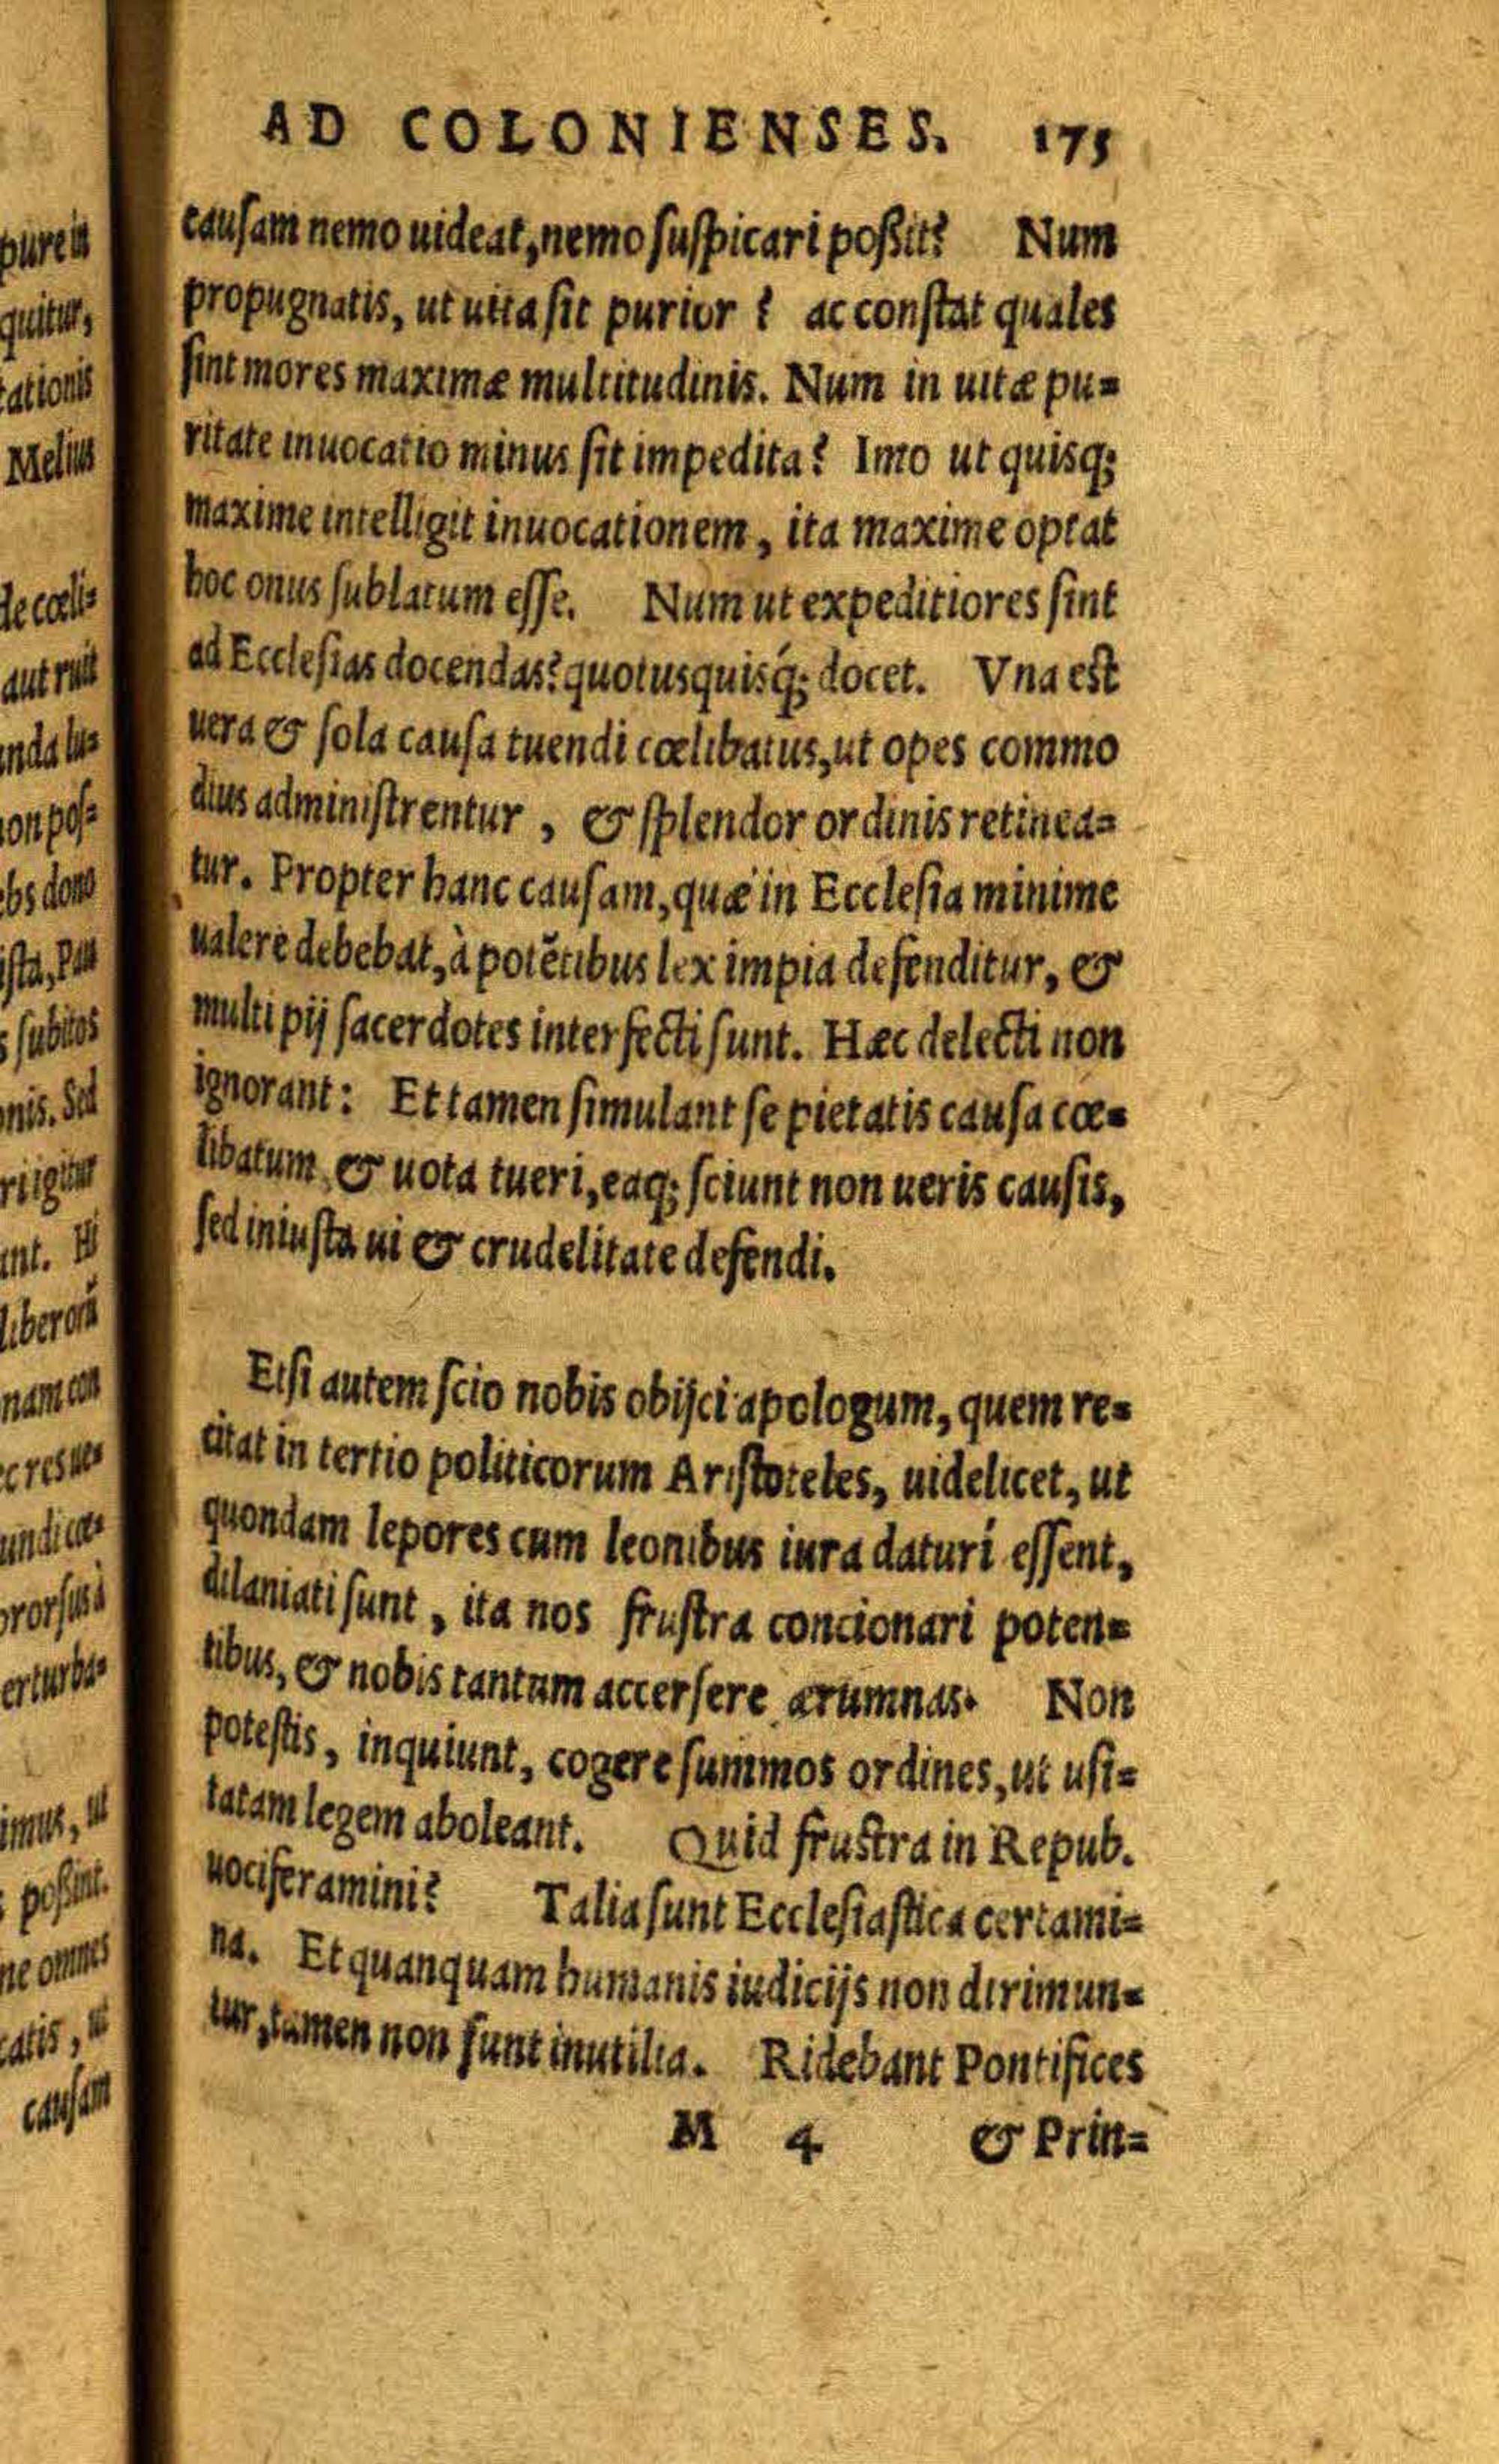 AD COLONIENSES. 175
cauſam nemo uideat, nemo ſuſpicari poßit? Num
propugnatis, ut uita ſit purior? ac conſtat quales
ſint mores maximæ multitudinis. Num in uitæ pu=
ritate inuocatio minus ſit impedita? Imo ut quisq;
maxime intelligit inuocationem, ita maxime optat
hoc onus ſublatum eſſe. Num ut expeditiores ſint
ad Ecclesias docendas? quotusquisq́; docet. Vna est
uera & ſola cauſa tuendi cœlibatus, ut opes commo
dius adminiſtrentur, & ſplendor ordinis retinea=
tur. Propter hanc cauſam, quæ in Ecclesia minime
ualere debebat, à potētibus lex impia defenditur, &
multi pij ſacerdotes interfecti ſunt. Hæc delecti non
ignorant: Et tamen ſimulant ſe pietatis cauſa cœ=
libatum & uota tueri, eaq; ſciunt non ueris cauſis,
ſed iniuſta ui & crudelitate defendi.
Etſi autem ſcio nobis obijci apologum, quem re=
citat in tertio politicorum Ariſtoteles, uidelicet, ut
quondam lepores cum leonibus iura daturi eſſent,
dilaniati ſunt, ita nos fruſtra concionari poten=
tibus, & nobis tantum accerſere ærumnas. Non
poteſtis, inquiunt, cogere ſummos ordines, ut uſi=
tatam legem aboleant. Quid fruſtra in Repub.
uociferamini? Talia ſunt Eccleſiaſtica certami=
na. Et quanquam humanis iudicijs non dirimun=
tur, tamen non ſunt inutilia. Ridebant Pontifices
M 4 & Prin=